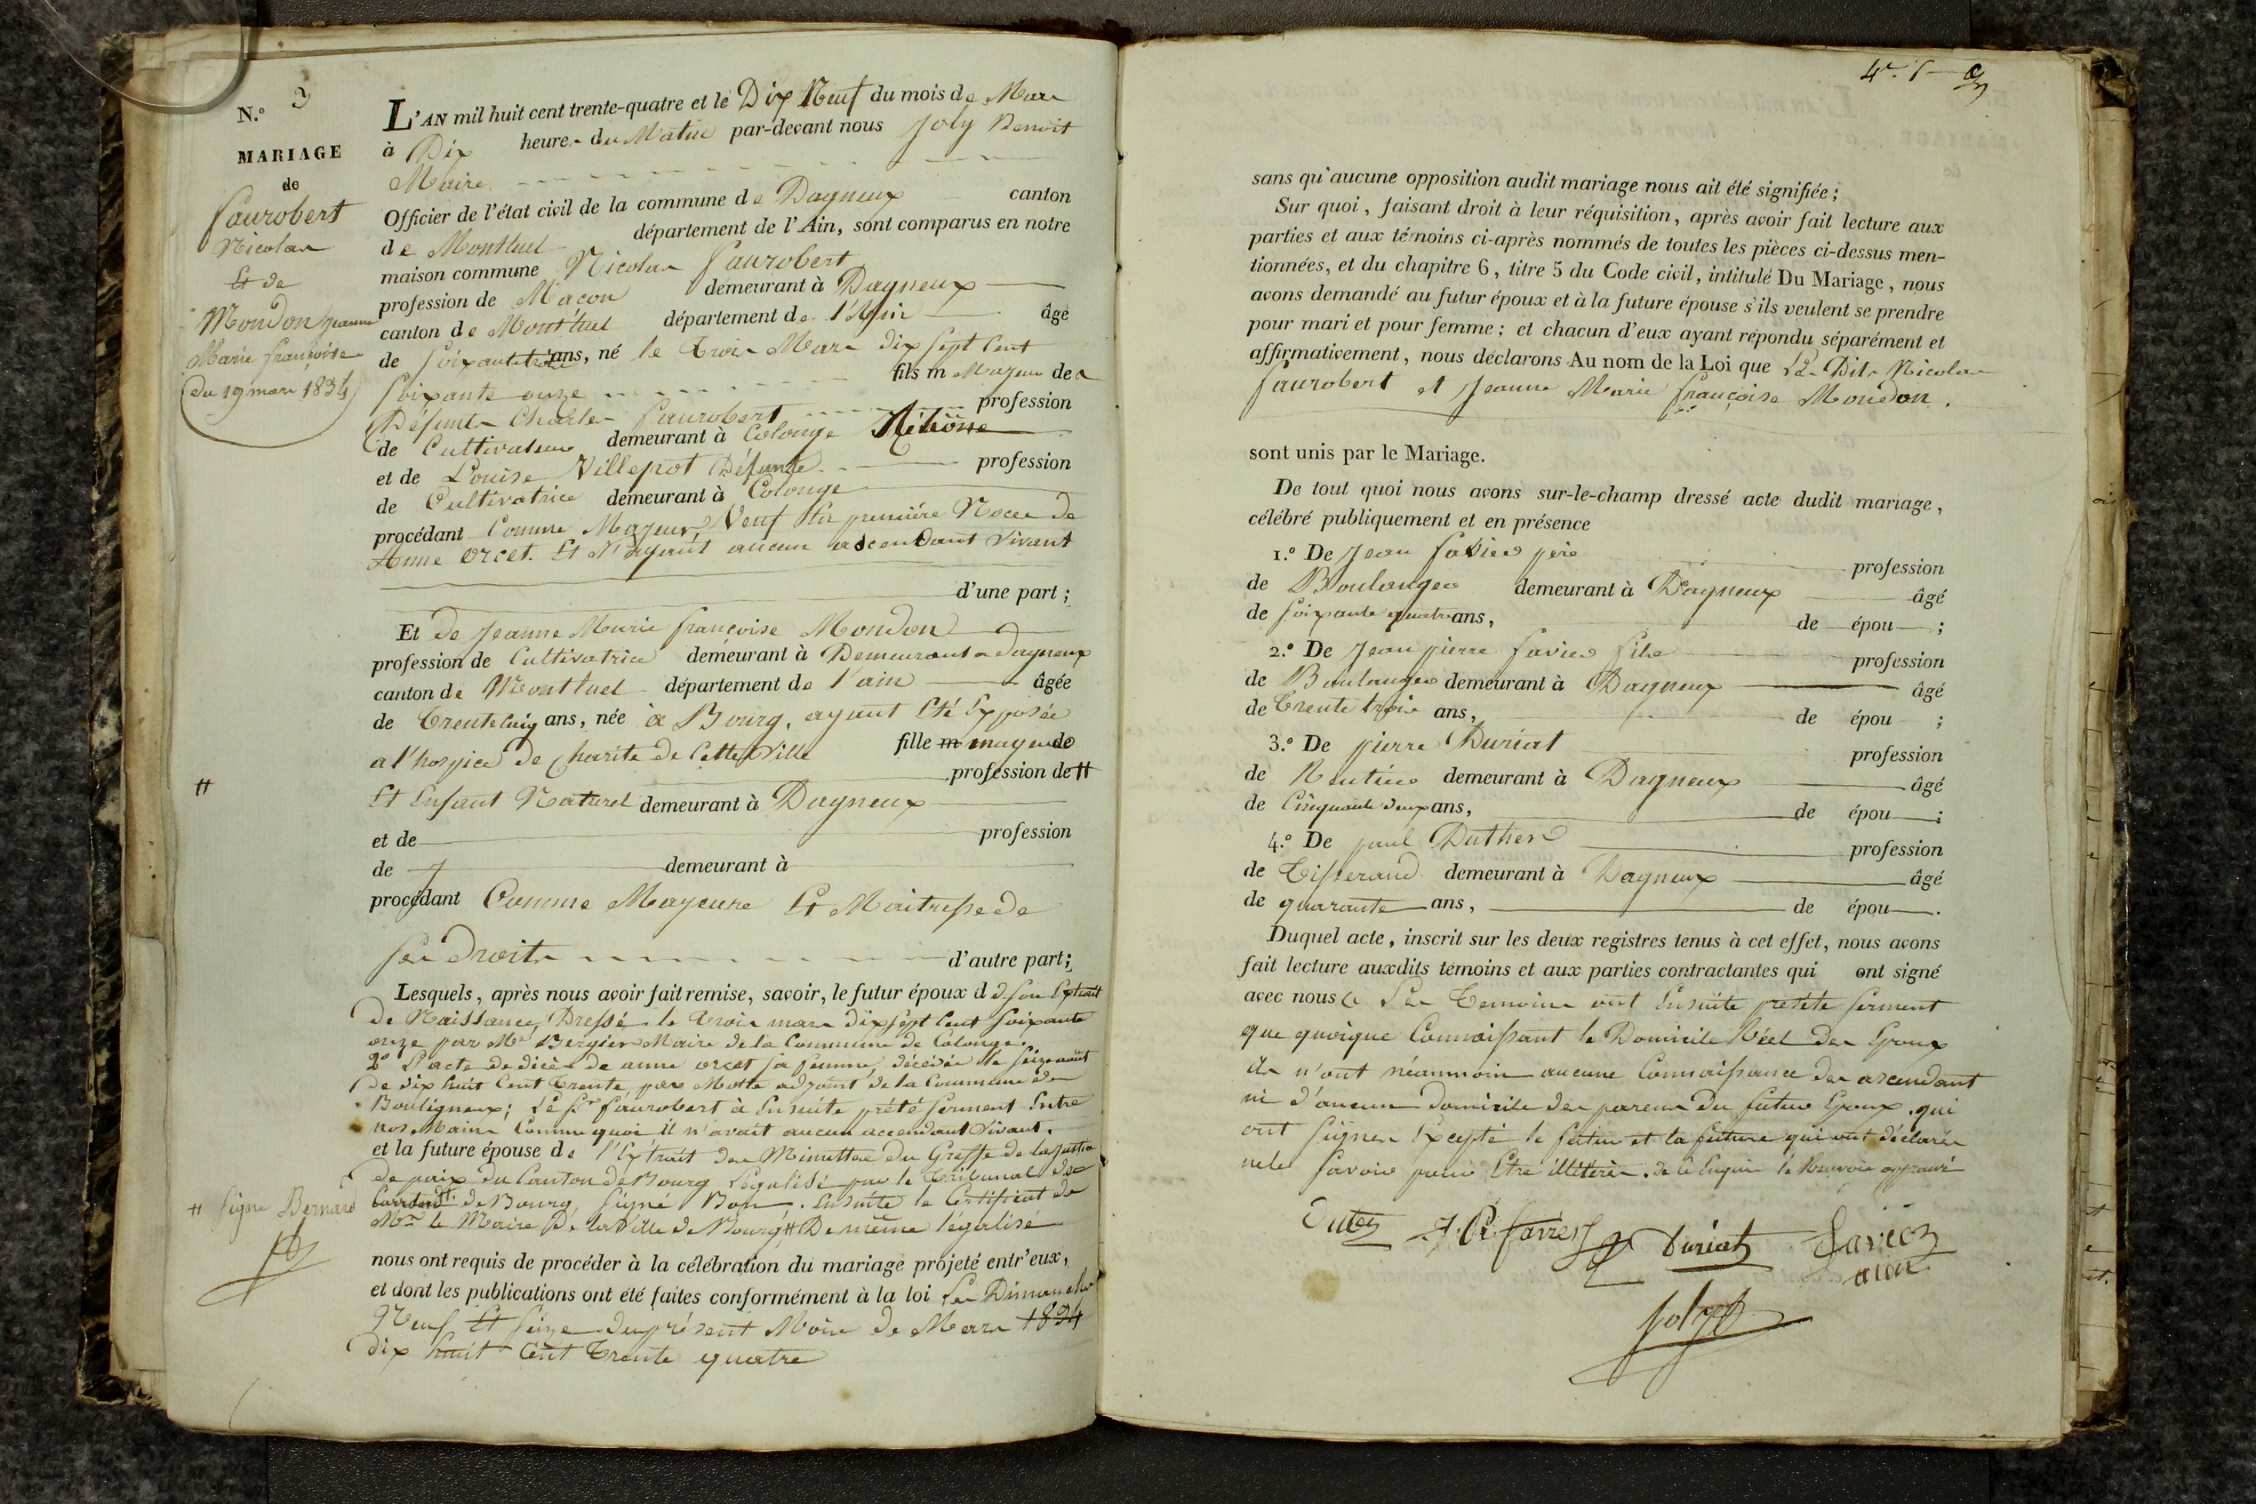 N.º 3
MARIAGE
de
faurobert
Nicolas
Et de
Mondon Jeanne
Marie françoise
Du 19 mars 1834
L'AN mil huit cent trente-quatre et le Dix Neuf du mois de Mars
à Dix heures du Matin par-devant nous Joly Benoit
Maire
Officier de l'état civil de la commune de Dagneux canton
de Montluel département de l'Ain, sont comparus en notre
maison commune Nicolas faurobert
profession de Maçon demeurant à Dagneux
canton de Montluel département de l'Ain âgé
de soixante trois ans, né le trois Mars dix sept cent
soixante onze fils m Majeur de
Défunt Charles faurobert profession
de Cultivateur demeurant à Colonge
et de Louise Villepot Défunte profession
de Cultivatrice demeurant à Colonge
procédant Comme Majeur Veuf En première Noces de
Anne Orcet. Et N'ayant aucun ascendant vivant
d'une part ;
Et de Jeanne Marie françoise Mondon
profession de Cultivatrice demeurant à Demeurant a Dagneux
canton de Montluel département de l'ain âgée
de Trente cinq ans, née à Bourg, ayant Eté Exposée
a l'hospice de Charité de Cette Ville fille m mageure de
profession de #
# Et Enfant Naturel demeurant à Dagneux
et de profession
de demeurant à
procédant Comme Mageure Et Maitresse de
ses Droits d'autre part ;
Lesquels, après nous avoir fait remise, savoir, le futur époux d de son Extrait
de Naissance, Dressé le trois mars dix sept cent soixante
onze par Mr Bergier Maire de la Commune de Colonge.
2º L'acte de décès de anne orcet sa femme, décédée le seize août
de dix huit Cent Trente par Motte adjoint de la Commune de
Bouligneux ; Le Sr faurobert à Ensuite prêté serment Entre
nos Mains Comme quoi il n'avait aucun accendant Vivant.
et la future épouse de l'Extrait des Minuttes du Greffe de la justice
de paix du Canton de Bourg Légalisé par le Tribunal de
de Bourg Signé Bon . Ensuite le Certificat de
Mr le Maire De la Ville de Bourg # De même légalisé
# Signé Bernard
nous ont requis de procéder à la célébration du mariage projeté entr'eux,
et dont les publications ont été faites conformément à la loi Les Dimanches
Neuf Et Seize du présent Mois de Mars 1834
dix huit Cent Trente quatre
sans qu'aucune opposition audit mariage nous ait été signifiée ;
Sur quoi, faisant droit à leur réquisition, après avoir fait lecture aux
parties et aux témoins ci-après nommés de toutes les pièces ci-dessus men-
tionnées, et du chapitre 6, titre 5 du Code civil, intitulé Du Mariage, nous
avons demandé au futur époux et à la future épouse s'ils veulent se prendre
pour mari et pour femme ; et chacun d'eux ayant répondu séparément et
affirmativement, nous déclarons Au nom de la Loi que Les Dits Nicolas
faurobert et Jeanne Marie françoise Mondon.
sont unis par le Mariage.
De tout quoi nous avons sur-le-champ dressé acte dudit mariage,
célébré publiquement et en présence
1.º De Jean favier père profession
de Boulanger demeurant à Dagneux âgé
de soixante quatre ans, de épou ;
2.º De Jean pierre favier fils profession
de Boulanger demeurant à Dagneux âgé
de Trente trois ans, de épou ;
3.º De pierre Duriat profession
de Rentier demeurant à Dagneux âgé
de Cinquante deux ans, de épou ;
4.º De paul profession
de Tisserand demeurant à Dagneux âgé
de quarante ans, de épou .
Duquel acte, inscrit sur les deux registres tenus à cet effet, nous avons
fait lecture auxdits témoins et aux parties contractantes qui ont signé
avec nous Les Temoins ont Ensuite pretéte serment
que quoique Connaissant le Domicile Réel des Epoux
ils n'ont néanmoin aucune Connaissance des ascendant
ni d'aucun Domicile des parens Du futur Epoux. qui
ont signer Excepté le futur et la future qui ont déclarés
ne le savoir pour Etre illitérés. de ce Enquis
Duriat
Favier
ainé
Joly